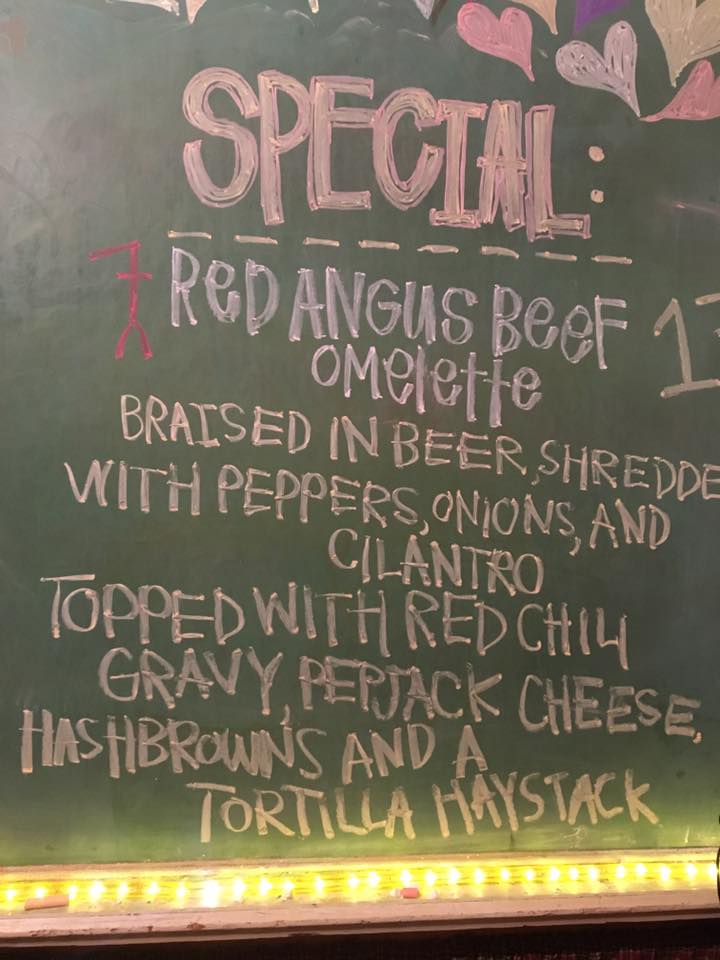 SPECIAL:
RED ANGUS BEEF
OMELETTE
BRAISED IN BEER, SHREDDE
WITH PEPPERS, ONIONS, AND
CILANTRO
TOPPED WITH RED CHILI
GRAVY, PEPJACK CHEESE,
HASHBROWNS AND A
TORTILLA HAYSTACK